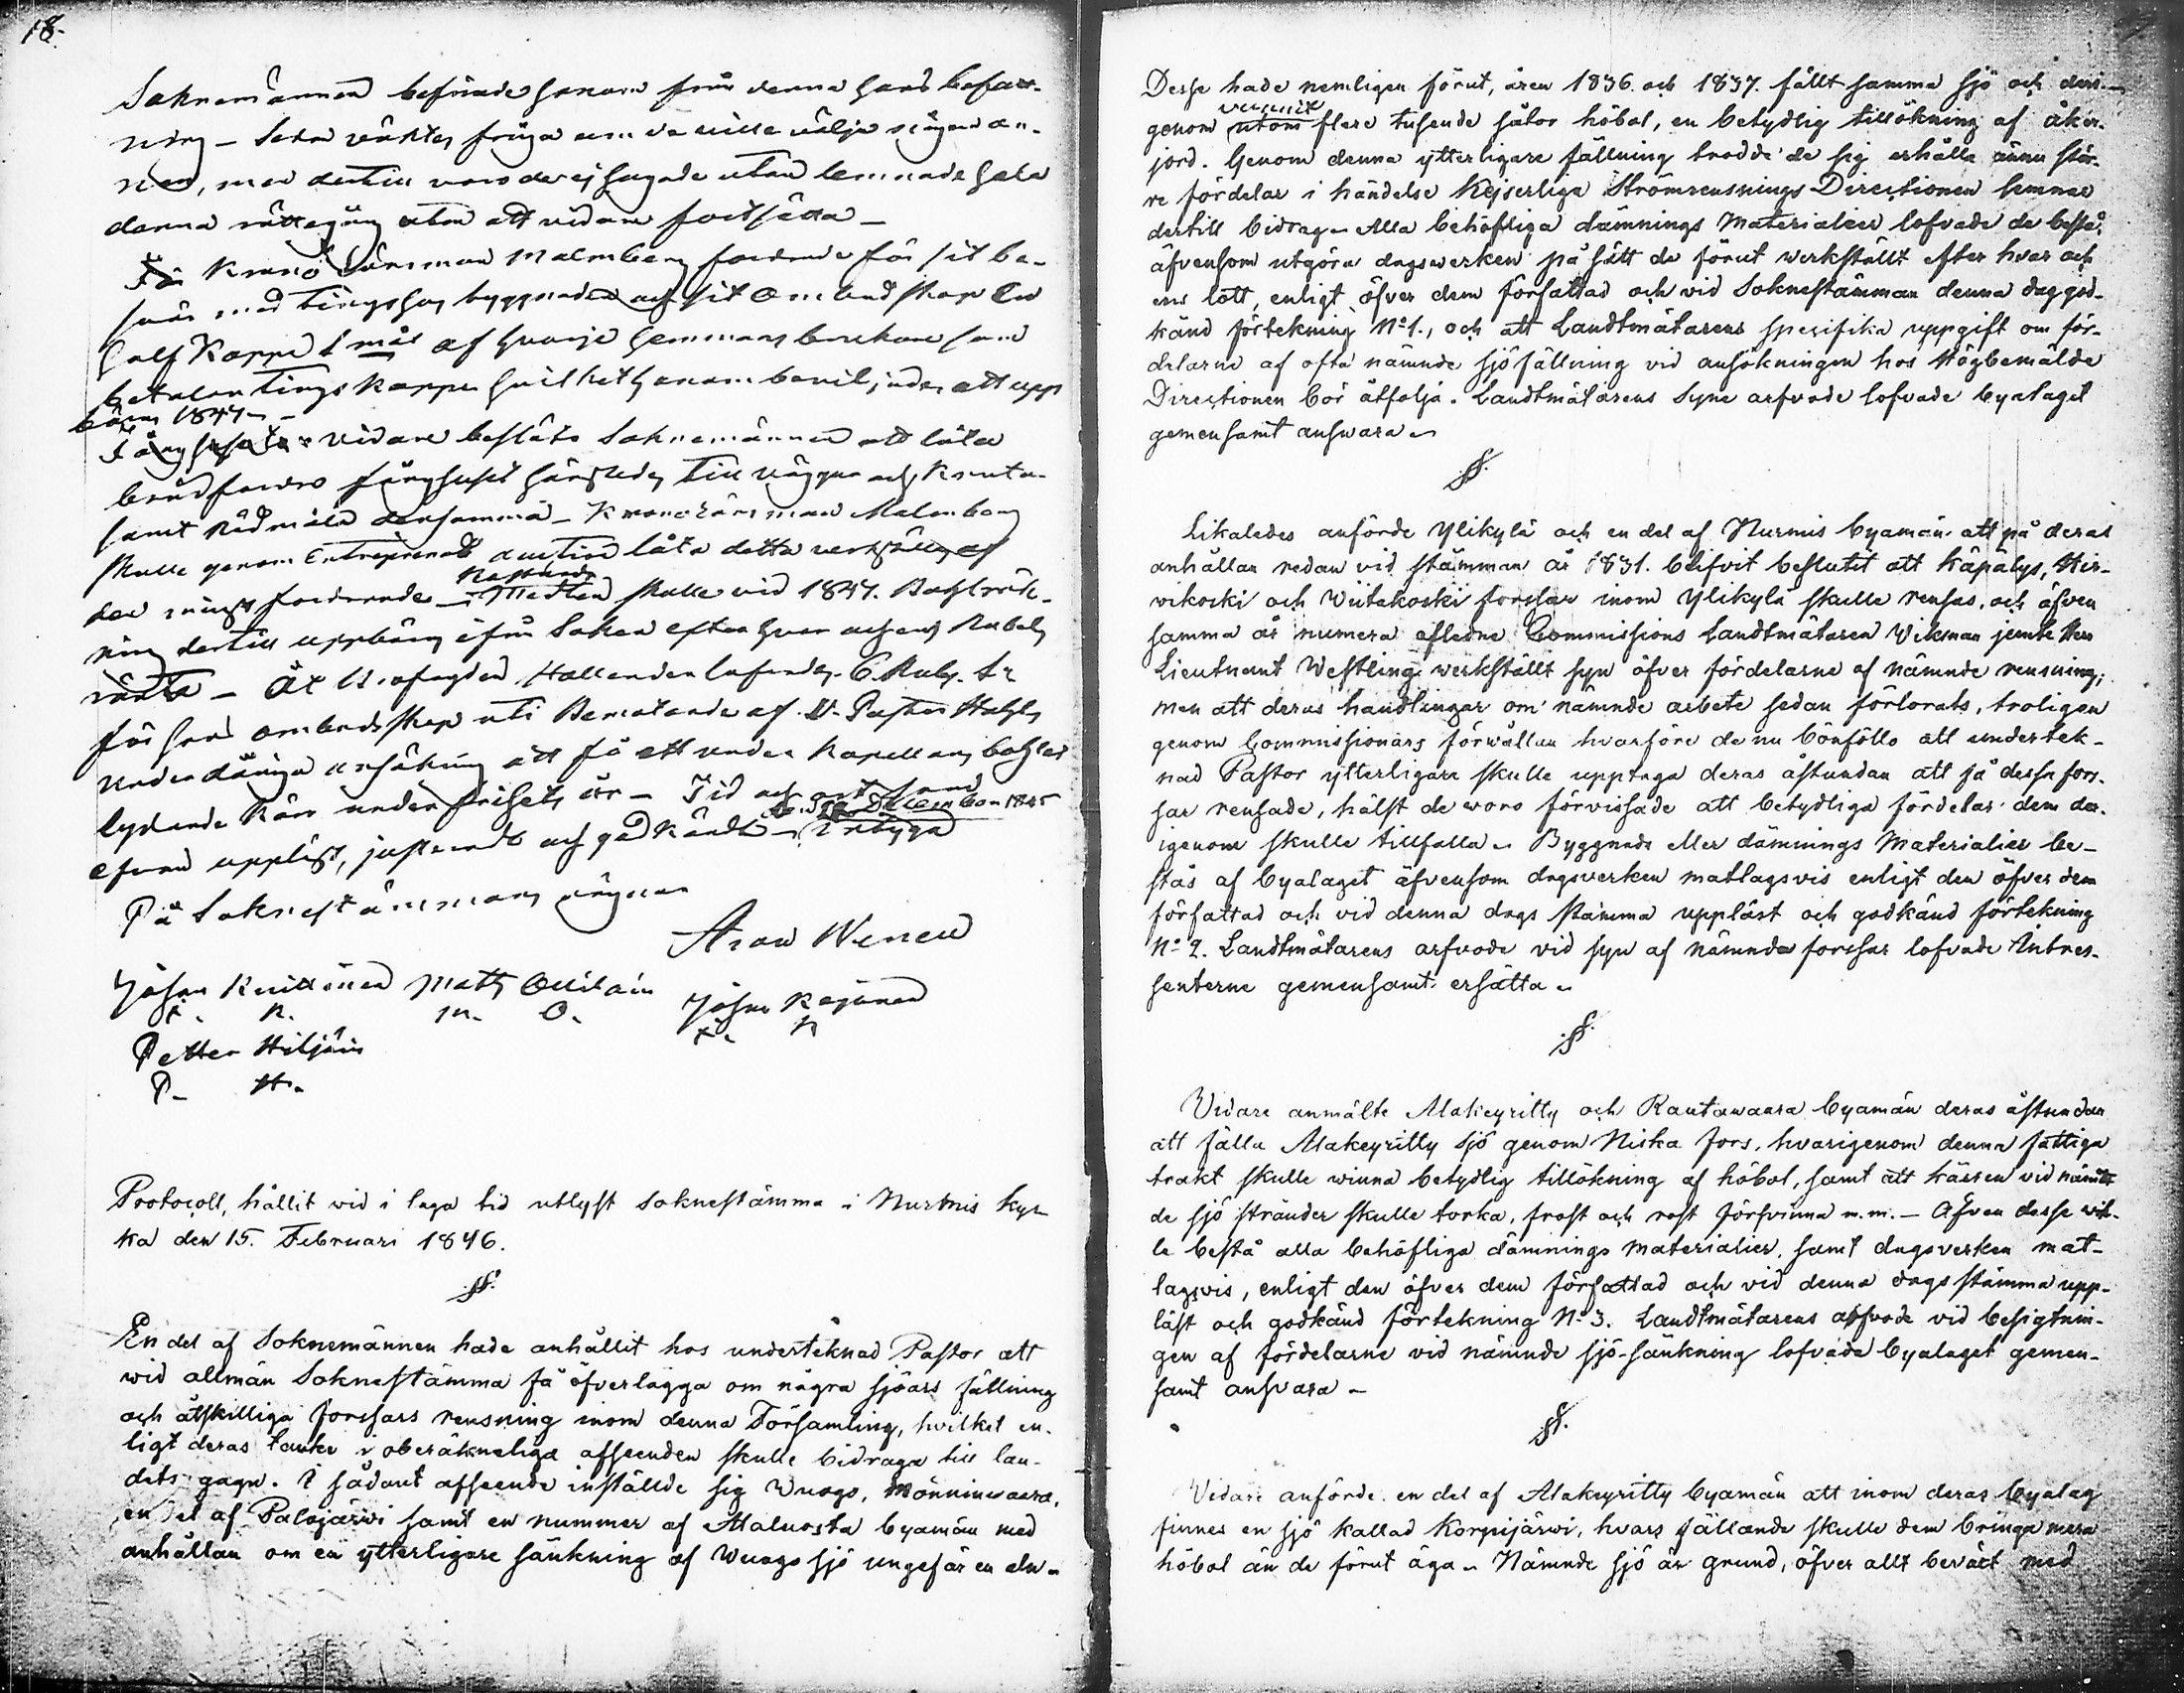 18.
Soknemännen befriade honom från denna hans befatt-
ning – Sedan väktes fråga om de ville välja någon an-
nan, men dertill voro de ej hugade utan lemnade hela
denna rättegång utan att vidare fortsätta –
Kronolänsman Malmberg fordrade för sit be-
svär med tingshus byggnaden och sit Ombudskap En
half Kappe af hvarje hemmans brukare som
betalar Tings kappar hvilket honom beviljades att upp
bäras 1847 –
vidare beslöto Soknemännen att låta
brädfordra fånghuset till väggar och knutar
samt rödmåla densamma – Kronolänsman Malmberg
skulle genom Entreprenad auction låta detta verkställas af
den minst fordrande – Kostnaden skulle vid 1847. Bogsräk-
ning dertill uppbäras ifrån Soknen efter hvar och ens Rubels
ränta – Åt Kronofogden Hallender lofvades 6. Rub. Sr
för hans ombudskap uti Bemötande af V. Pastor
underdåniga ansökning att få ett under Kapellans bohlet
lydande Kärr under frihets år – Tid och ort som
ofvan uppläst, justeradt och godkändt – December 1845
Intyga
På Soknestämmans vägnar
Aron Nenen
Johan Kuittinen Matts Ollilain Johan Kejonen
J. K. M. O. J. K
Petter Hiljain
P. H.
Protocoll, hållit vid i laga tid utlyst soknestämma i Nurmis kyr-
ka den 15. Februari 1846.
§.
En del af Soknemännen hade anhållit hos undertecknad Pastor att
wid allmän Soknestämma få öfverlägga om några sjöars fällning
och åtskilliga forssars rensning inom denna Församling, hvilket en-
ligt deras tanke i oberäkneliga afseenden skulle bidraga till lan-
dets gagn. I sådant afseende inställde sig Wuogo, Mönninwaara,
en del af Palojärwi samt en nummer af Maluosta byamän med
anhållan om en ytterligare sänkning af Wuogo sjö ungefär en aln –
Desse hade nemligen förut, åren 1836. och 1837. fällt samma sjö och deri-
genom vunnit utom flere tusende såtor höbol, en betydlig tillökning af åker-
jord. Genom denna ytterligare fällning trodde de sig erhålla ännu stör-
re fördelar i händelse Kejserliga Strömrensnings Directionen lemnar
dertill bidrag – Alla behöfliga dämnings Materialier lofvade de bestå,
äfvensom utgöra dagswerken på sätt de förut werkställt efter hvar och
ens lott, enligt öfver dem författad och vid Soknestämman denna dag god-
känd förtekning No 1., och att Landtmätarens specifika uppgift om för-
delarne af ofta nämnde sjöfällning vid ansökningen hos Högbemälde
Directionen bör åtfölja. Landtmätarens Syne arfvode lofvade byalaget
gemensamt answara –
§.
Likaledes anförde Ylikylä och en del af Nurmis byamän att på deras
anhållan redan vid stämman år 1831. blifvit beslutit att Käpälys, Hir-
wikoski och Wiitakoski forssar inom Ylikylä skulle rensas, och äfven
samma år numera afledne Commissions Landtmätaren Wikman jemte Herr
Lieutnant Westling werkställt syn öfver fördelarne af nämnde rensning;
men att deras handlingar om nämnde arbete sedan förlorats, troligen
genom Commissionärs förwållan hvarföre de nu bönföllo att undertek-
nad Pastor ytterligare skulle upptaga deras åstundan att få dessa fors-
sar rensade, hälst de woro förvissade att betydliga fördelar dem der-
igenom skulle tillfalla – Byggnads eller dämnings Materialier be-
stås af byalaget äfvensom dagsverken matlagsvis enligt den öfver dem
författad och vid denna dags stämma uppläst och godkänd förtekning
No 2. Landtmätarens arfvode vid syn af nämnda forssar lofvade Intres-
senterne gemensamt ersätta –
§.
Vidare anmälte Alakeyritty och Rautawaara byamän deras åstundan
att fälla Alakeyritty sjö genom Niska fors, hvarigenom denna fattiga
trakt skulle winna betydlig tillökning af höbol, samt att kärren vid nämn-
de sjö stränder skulle torka, frost och rost försvinna m.m. – Äfven desse wil-
le bestå alla behöfliga dämnings materialier, samt dagsverken mat-
lagsvis, enligt den öfver dem författad och vid denna dags stämma upp-
läst och godkänd förtekning No 3. Landtmätarens arfvode vid besigtnin-
gen af fördelarne vid nämnde sjö-sänkning lofvade byalaget gemen-
samt ansvara –
§.
Vidare anförde en del af Alakeyritty byamän att inom deras byalag
finnes en sjö kallad Korpijärwi, hvars fällande skulle dem bringa mera
höbol än de förut äga – Nämnde sjö är grund, öfver allt beväxt med